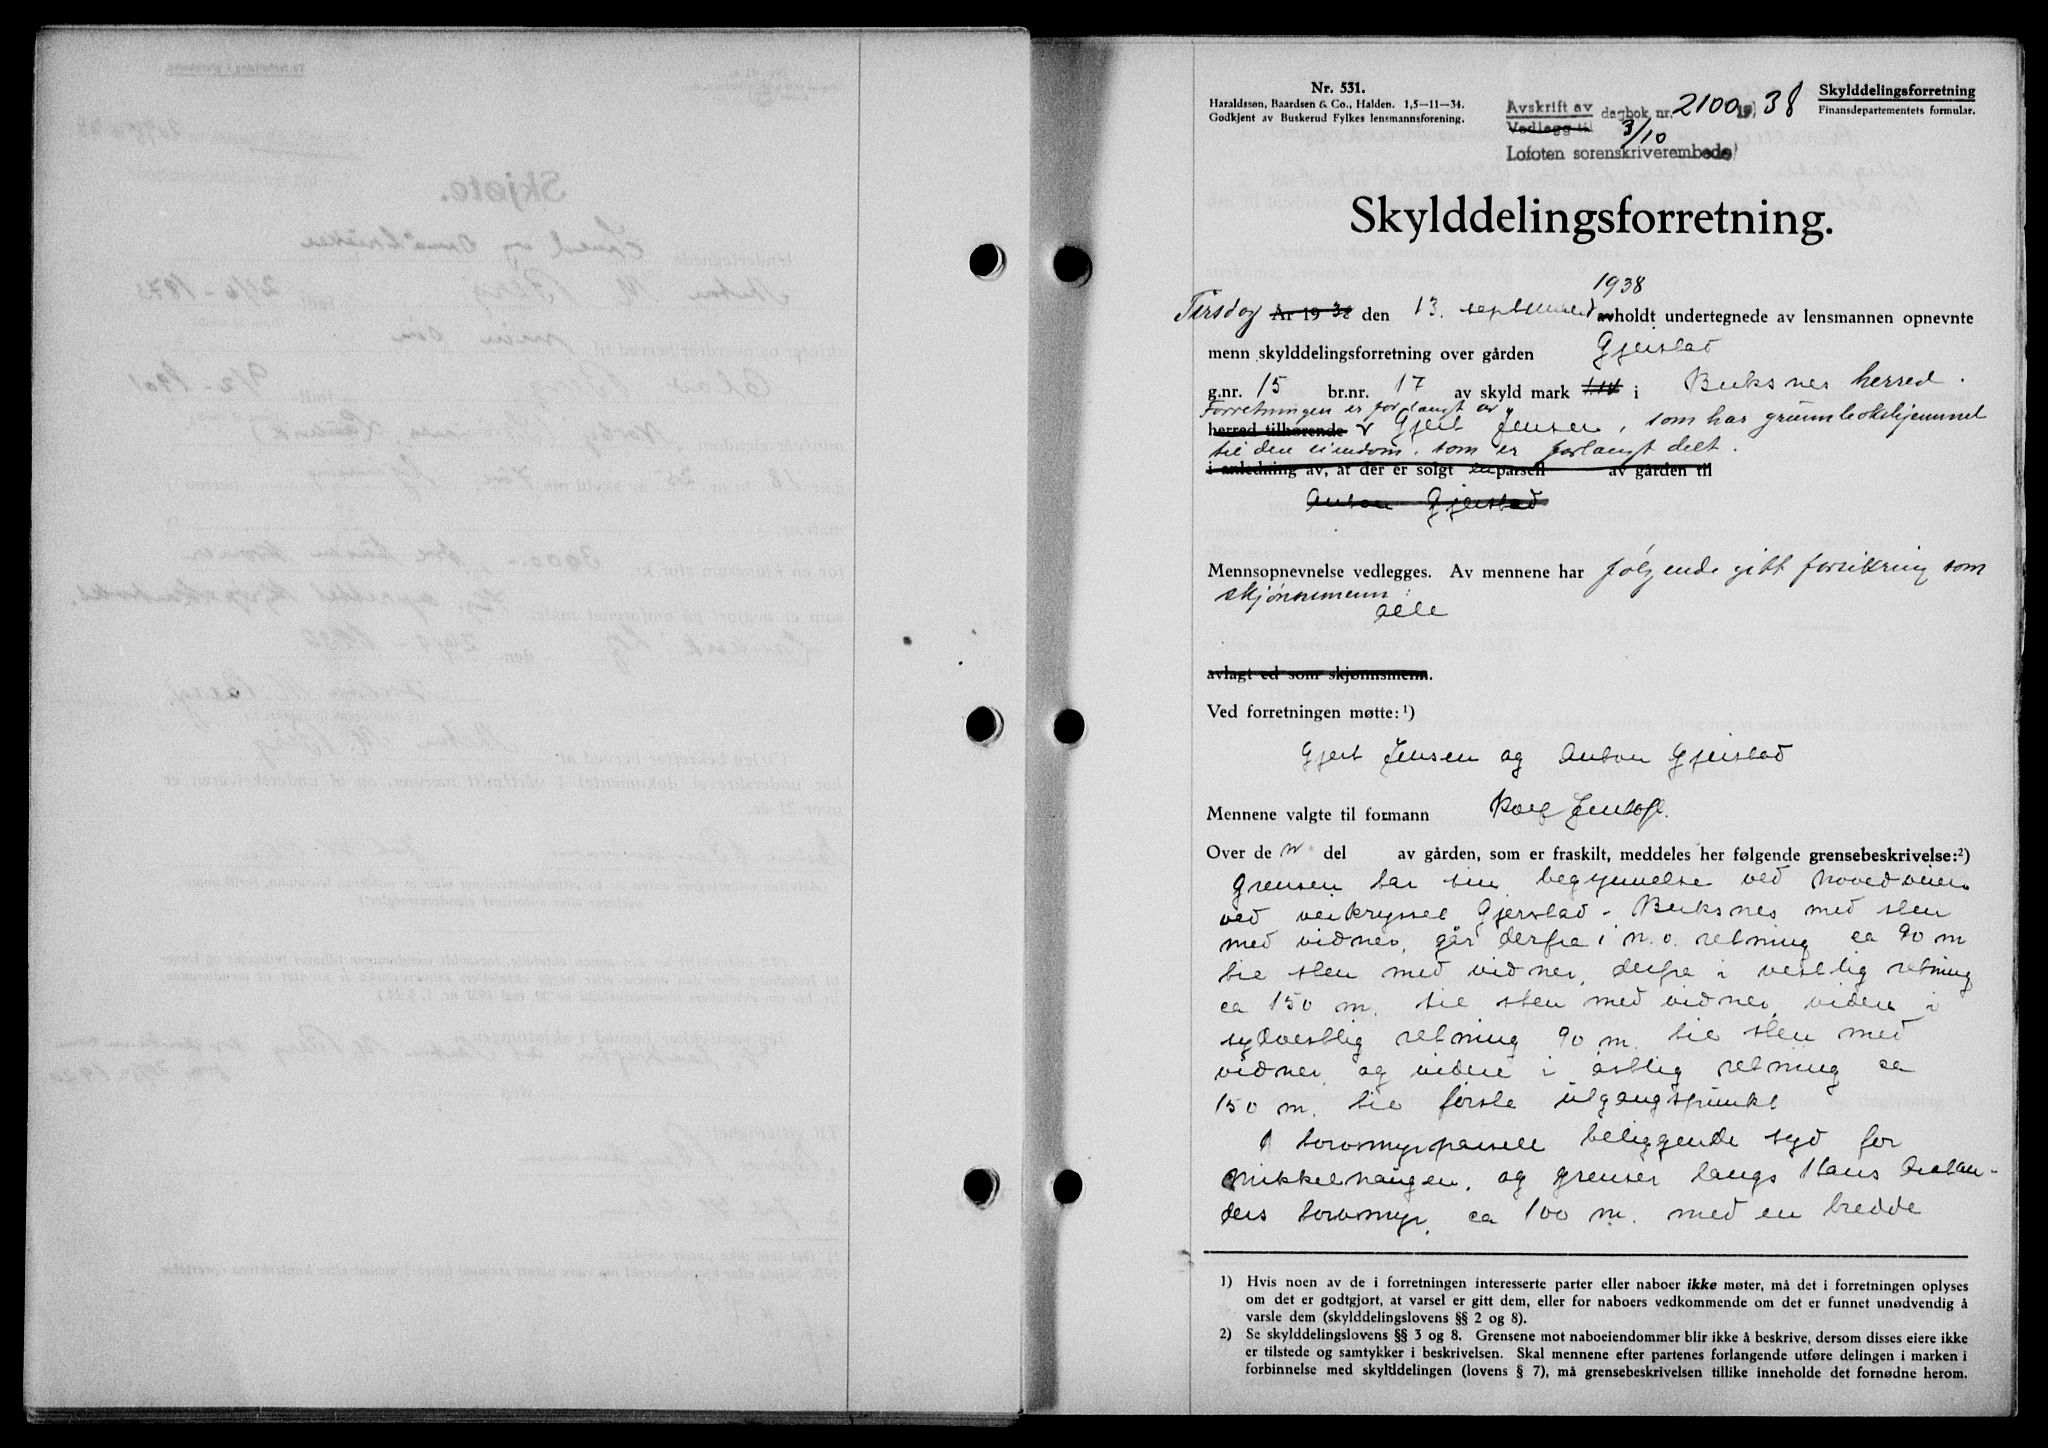 Nr. 531.
Haraldssøn, Baardsen & Co., Halden. 1,5—11—34.
Godkjent av Buskerud Fylkes lensmannsforening.
Avskrift av dagbok nr. 2100 1938
Vedlegg til 3/10
Lofoten sorenskriverembede
Skylddelingsforretning
Finansdepartementets formular.
Skylddelingsforretning.
1938
Tirsdag År 1938 den 13. september avholdt undertegnede av lensmannen opnevnte
menn skylddelingsforretning over gården Gjerstad
g.nr. 15 br.nr. 17 av skyld mark i Buksnes herred.
Forretningen er forlangt av
herred tilhørende Gjert Jensen, som har grunnbokshjemmel
til den eiendom, som er forlangt delt.
i anledning av, at der er solgt en parsell av gården til
Anton Gjerstad
Mennsopnevnelse vedlegges. Av mennene har følgende gitt forsikring som
skjønnsmenn:
alle
avlagt ed som skjønnsmenn.
Ved forretningen møtte:¹)
Gjert Jensen og Anton Gjerstad
Mennene valgte til formann Rolf Jentoft.
Over de n del av gården, som er fraskilt, meddeles her følgende grensebeskrivelse:²)
Grensen tar sin begynnelse ved hovedveien
ved veikrysset Gjerstad - Buksnes med sten
med vidner, går derfra i n.o. retning ca 90 m
til sten med vidner, derfra i vestlig retning
ca 150 m. til sten med vidner, viden i
sydvestlig retning 90 m. til sten med
vidner, og videre i østlig retning ca
150 m. til første utgangspunkt
1 torvmyrparsell beliggende syd for
Mikkelhaugen, og grenser langs Hans
ders torvmyr, ca 100 m. med en bredde
1) Hvis noen av de i forretningen interesserte parter eller naboer ikke møter, må det i forretningen oplyses
om det er godtgjort, at varsel er gitt dem, eller for naboers vedkommende om det er funnet unødvendig å
varsle dem (skylddelingslovens §§ 2 og 8).
2) Se skylddelingslovens §§ 3 og 8. Grensene mot naboeiendommer blir ikke å beskrive, dersom disses eiere ikke
er tilstede og samtykker i beskrivelsen. Skal mennene efter partenes forlangende utføre delingen i marken i
forbinnelse med skylddelingen (lovens § 7), må grensebeskrivelsen tillike inneholde det fornødne herom.